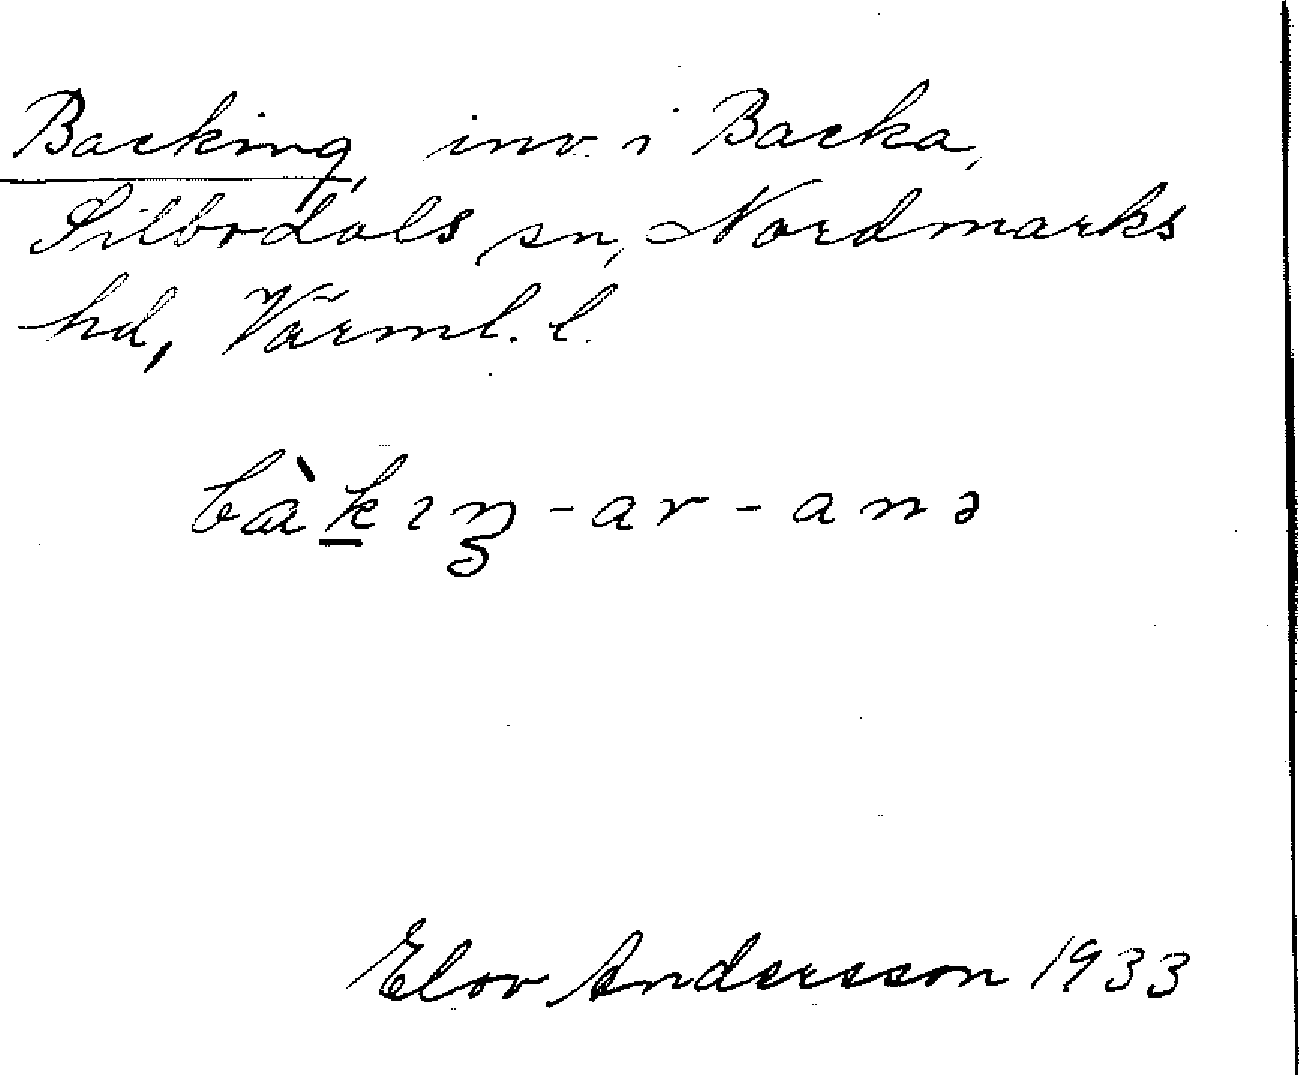 Backing, inv. i Backa,
Silbodals sn, Nordmarks
hd, Värml. l.
bàkıŋ-ar-anə
Elov Andersson 1933